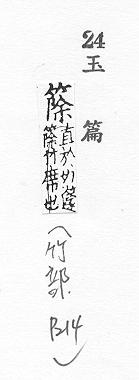 24 玉篇
篨 直於切籧
篨竹席也
(竹部 B14)